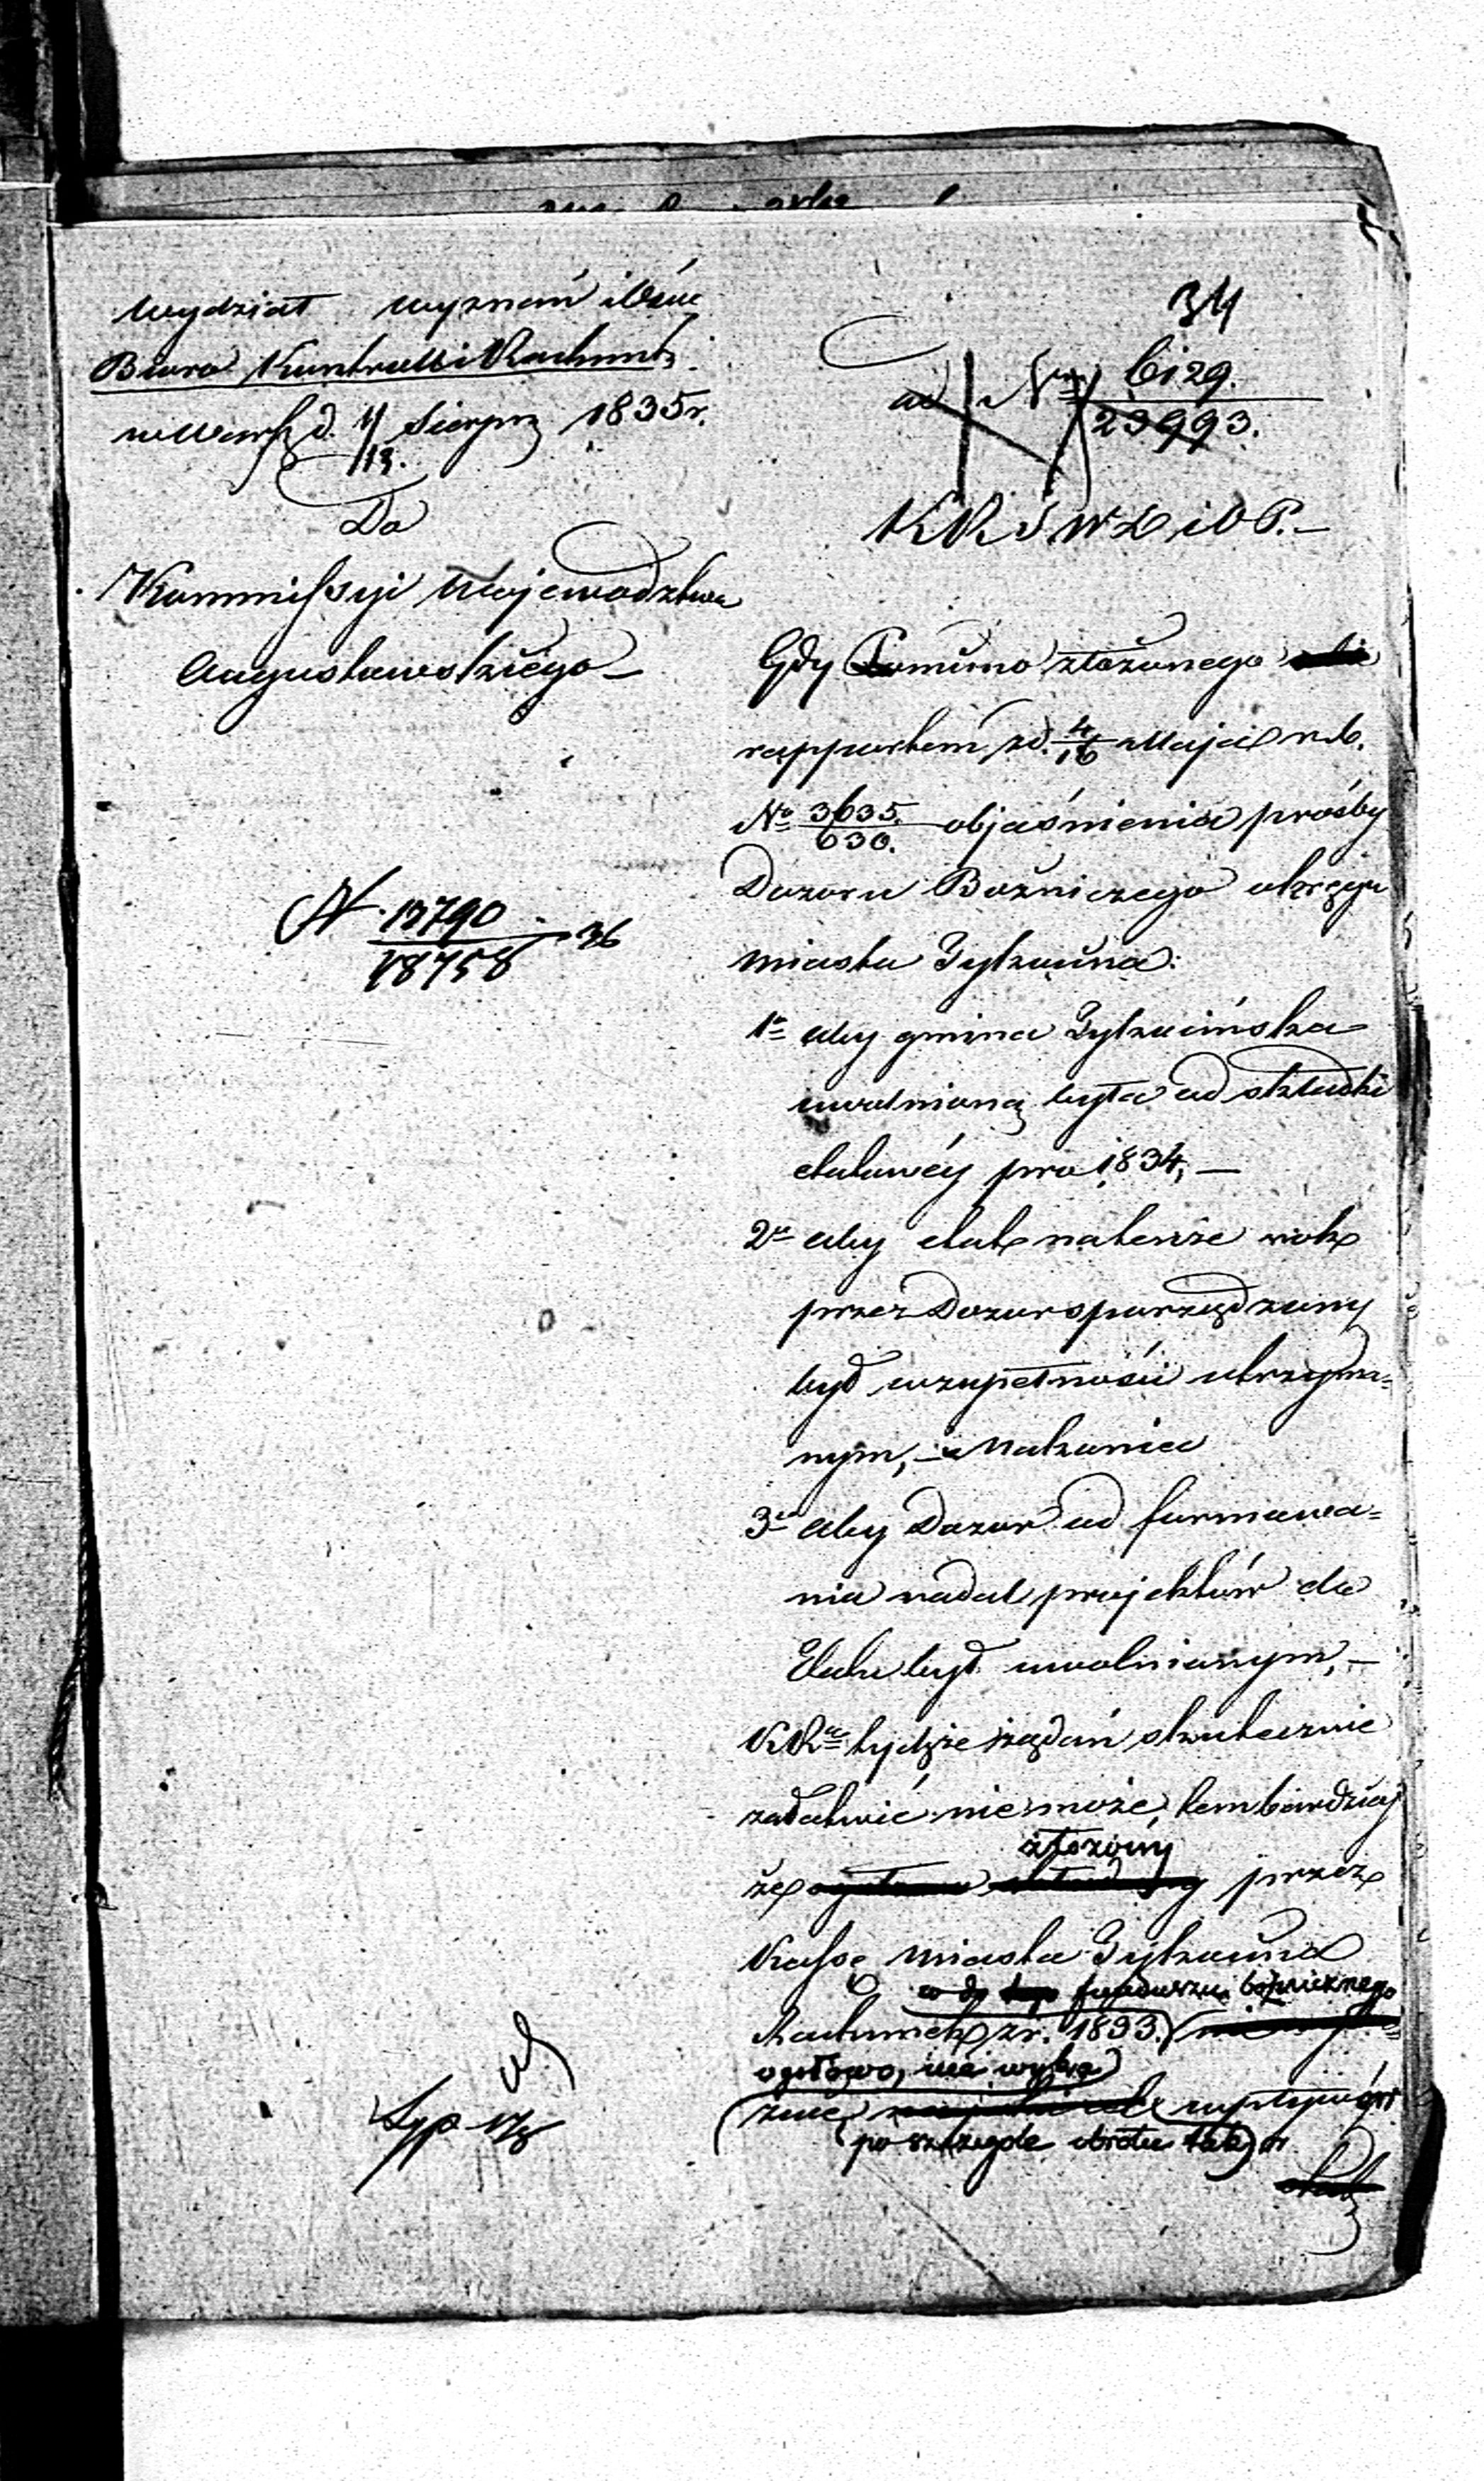 34
Wydział Wyznań i Ośw.
Biuro Kontrolli i Rachunk.
w Warsz. d. 1/13 Sierpn. 1835 r.
Do
Kommissyi Województwa
Augustowskiego –
ad Nr 6129.
23993.
K R S W D i O P. –
Gdy Pomimo złożonego
rapportem z d. 4/16 Maja r. b.
No 3635/630. objaśnienia prośby
Dozoru Bożniczego okręgu
miasta Tykocina:
1o aby gmina Tykocińska
uwolnioną była od składki
etatowéy pro 1834, –
2o aby etat na tenże rok
przez Dozor sporządzony
był w zupełności utrzyma=
nym, – a nakoniec
3o aby Dozor od formowa=
nia nadal projektów do
Etatu był uwolnionym, –
KRa tychże żądań skutecznie
załatwić nie może, tembardziéj
złożony
że przez
Kassę miasta Tykocina
co do funduszu bożniczego
Rachunek z r. 1833.
ogółowo, nie wyka
zuje wpływów
po szczególe
N. 13790/18758 36